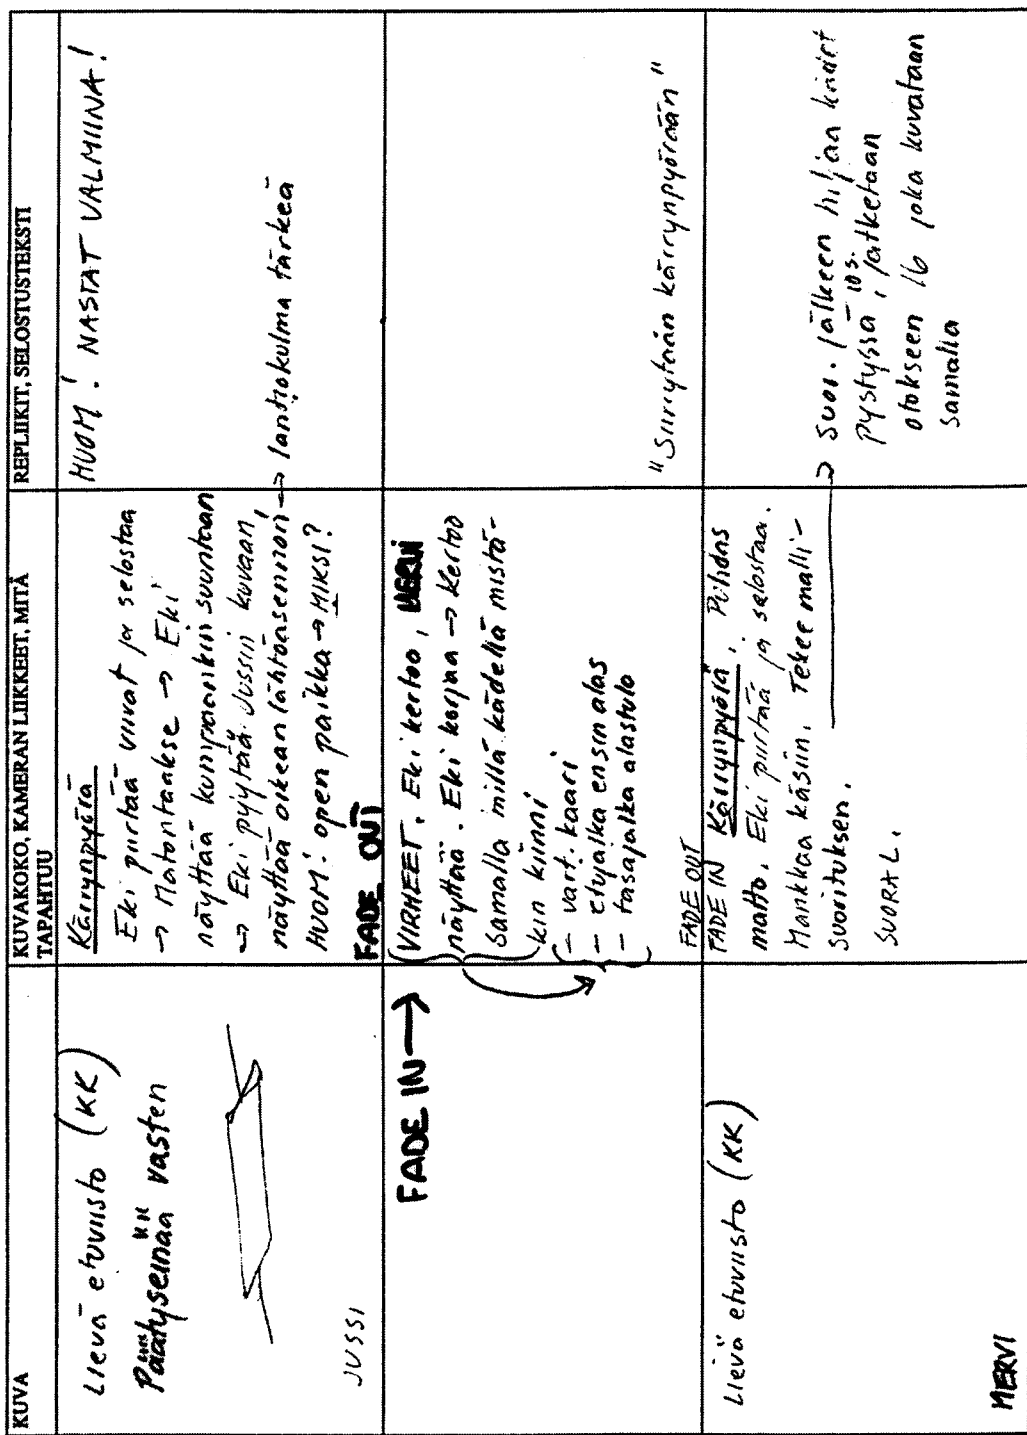 KUVA
KUVAKOKO, KAMERAN LIIKKEET, MITÄ
TAPAHTUU
REPLIIKIT, SELOSTUSTEKSTI
Lievä etuviisto (KK)
Päätyseinää vasten
JUSSI
Kärrynpyörä
Eki piirtää viivat ja selostaa
→ Matontaakse → Eki
näyttää kumpaankiin suuntaan
→ Eki pyytää Jussin kuvaan,
näyttää oikean lähtöasennon → lantiokulma tärkeä
HUOM! open paikka → MIKSI?
FADE OUT
HUOM! NASTAT VALMIINA!
FADE IN →
VIRHEET. Eki kertoo, MERVI
näyttää. Eki korjaa → kertoo
samalla millä kädellä mistä-
kin kiinni
- vart. kaari
- etujalka ensin alas
- tasajalka alastulo
FADE OUT
"Siirrytään kärrynpyörään"
Lievä etuviisto (KK)
MERVI
FADE IN Kärrynpyörä. Puhdas
matto. Eki piirtää ja selostaa.
Mankkaa käsiin. Tekee malli-
suorituksen.
SUORA L.
→ suor. jälkeen hiljaa kädet
pystyssä 10 s., jatketaan
otokseen 16 joka kuvataan
samalla